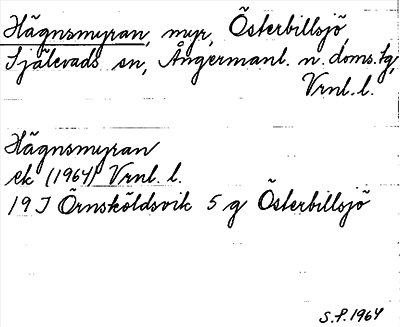 Hägnsmyran, myr, Österbillsjö
Själevads sn, Ångermanl. n. doms.fg,
Vrnl. l.
Hägnsmyran
ek (1964) Vrnl. l.
19 J Örnsköldsvik 5 g Österbillsjö
S.F. 1964